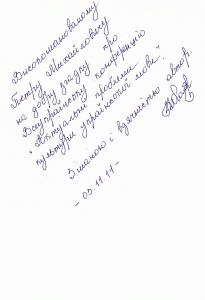 Високошановному
Петру Михайловичу
на добру згадку про
Всеукраїнську конференцію
"Актуальні проблеми
культури української мови".
З шаною і вдячністю автор.
- 03.11.11 -